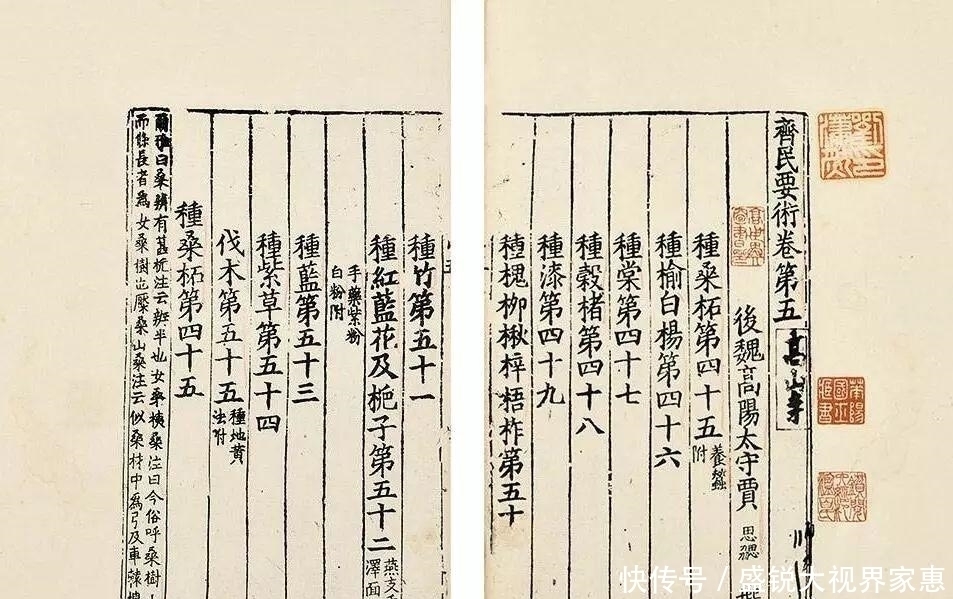 齊民要術卷第五
高山寺
後魏高陽太守賈思勰
種桑柘第四十五 養蠶附
種榆白楊第四十六
種棠第四十七
種穀楮第四十八
種漆第四十九
種槐柳楸梓梧柞第五十
種竹第五十一
種紅藍花及梔子第五十二 燕支 澤面
手藥紫粉白粉附
種藍第五十三
種紫草第五十四
伐木第五十五 種地黃法附
種桑柘第四十五
爾雅曰桑辨有葚梔注云辨半也女桑桋桑注曰今俗呼桑樹
而條長者為女桑樹也檿桑山桑注云似桑材中為弓及車轅
快传号/盛锐大视界家惠